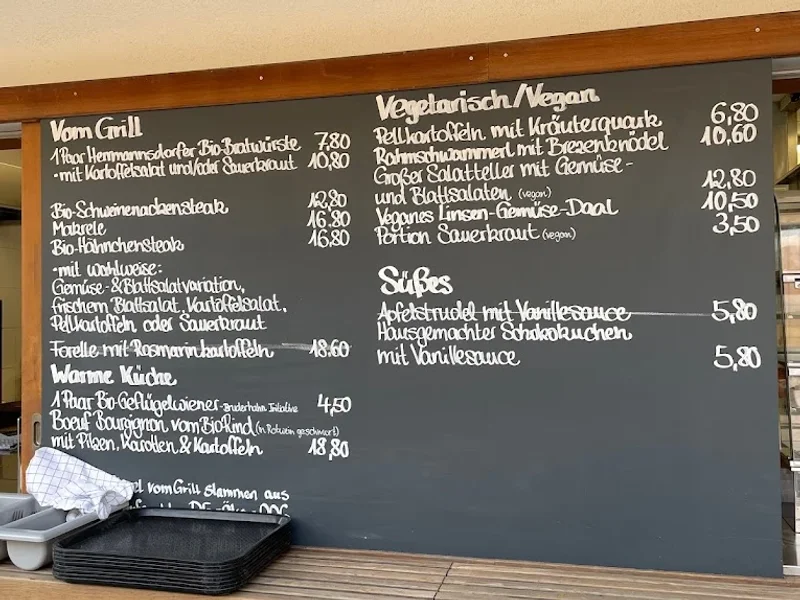 Vom Grill
1 Paar Herrmannsdorfer Bio-Bratwürste 7,80
• mit Kartoffelsalat und/oder Sauerkraut 10,80
Bio-Schweinenackensteak 12,80
Makrele 16.80
Bio-Hähnchensteak 16,80
• mit wahlweise:
Gemüse- & Blattsalatvariation,
frischem Blattsalat, Kartoffelsalat,
Pellkartoffeln oder Sauerkraut
Forelle mit Rosmarinkartoffeln 18.60
Warme Küche
1 Paar Bio-Geflügelwiener - Bruderhahn Initiative 4,50
Boeuf Bourgignon vom BioRind (in Rotwein geschmort)
mit Pilzen, Karotten & Kartoffeln 18,80
vom Grill stammen aus
Vegetarisch/Vegan
Pellkartoffeln mit Kräuterquark 6,80
Rahmschwammerl mit Brezenknödel 10,60
Großer Salatteller mit Gemüse-
und Blattsalaten (vegan) 12,80
Veganes Linsen-Gemüse-Daal 10,50
Portion Sauerkraut (vegan) 3,50
Süßes
Apfelstrudel mit Vanillesauce 5,80
Hausgemachter Schokokuchen
mit Vanillesauce 5,80